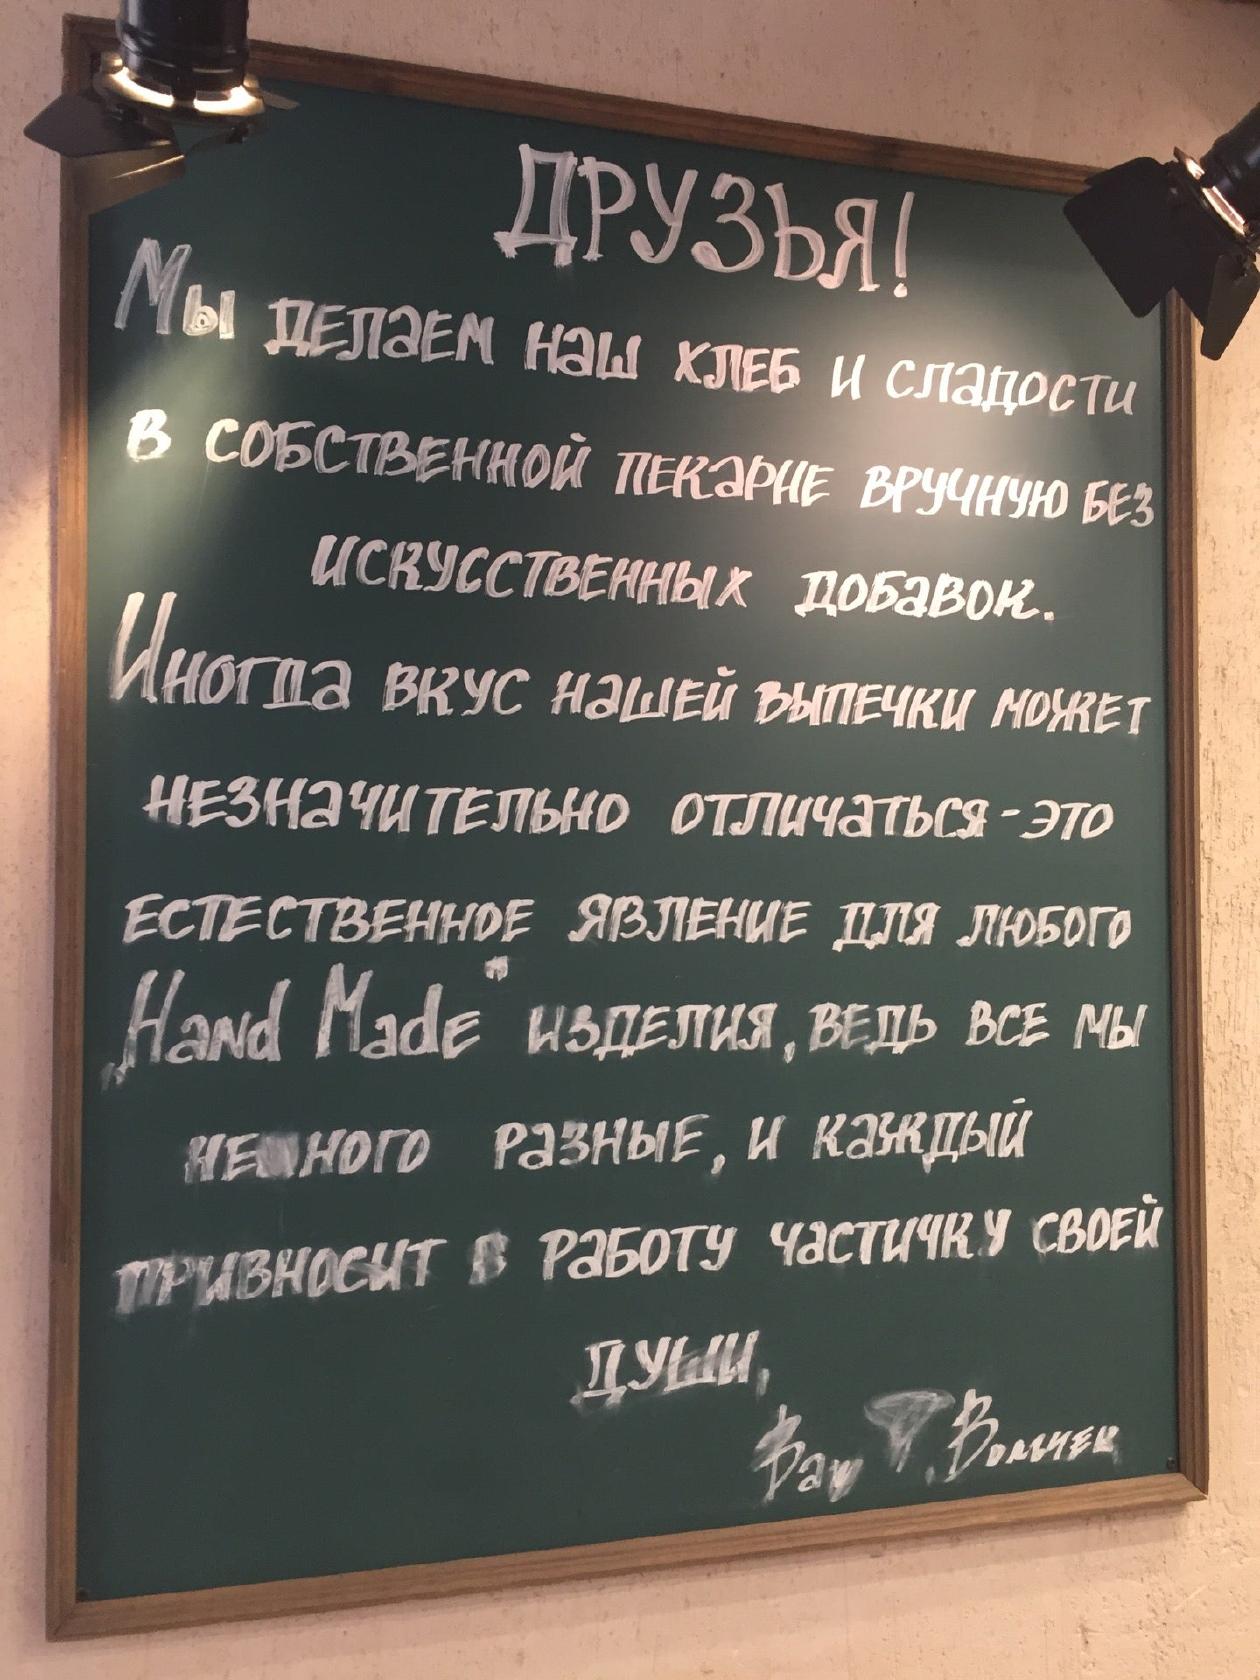 ДРУЗЬЯ!
Мы делаем наш хлеб и сладости
в собственной пекарне вручную без
искусственных добавок.
Иногда вкус нашей выпечки может
незначительно отличаться - это
естественное явление для любого
„Hand Made" изделия, ведь все мы
немного разные, и каждый
привносит в работу частичку своей
души,
Ваш Т. Вольчек